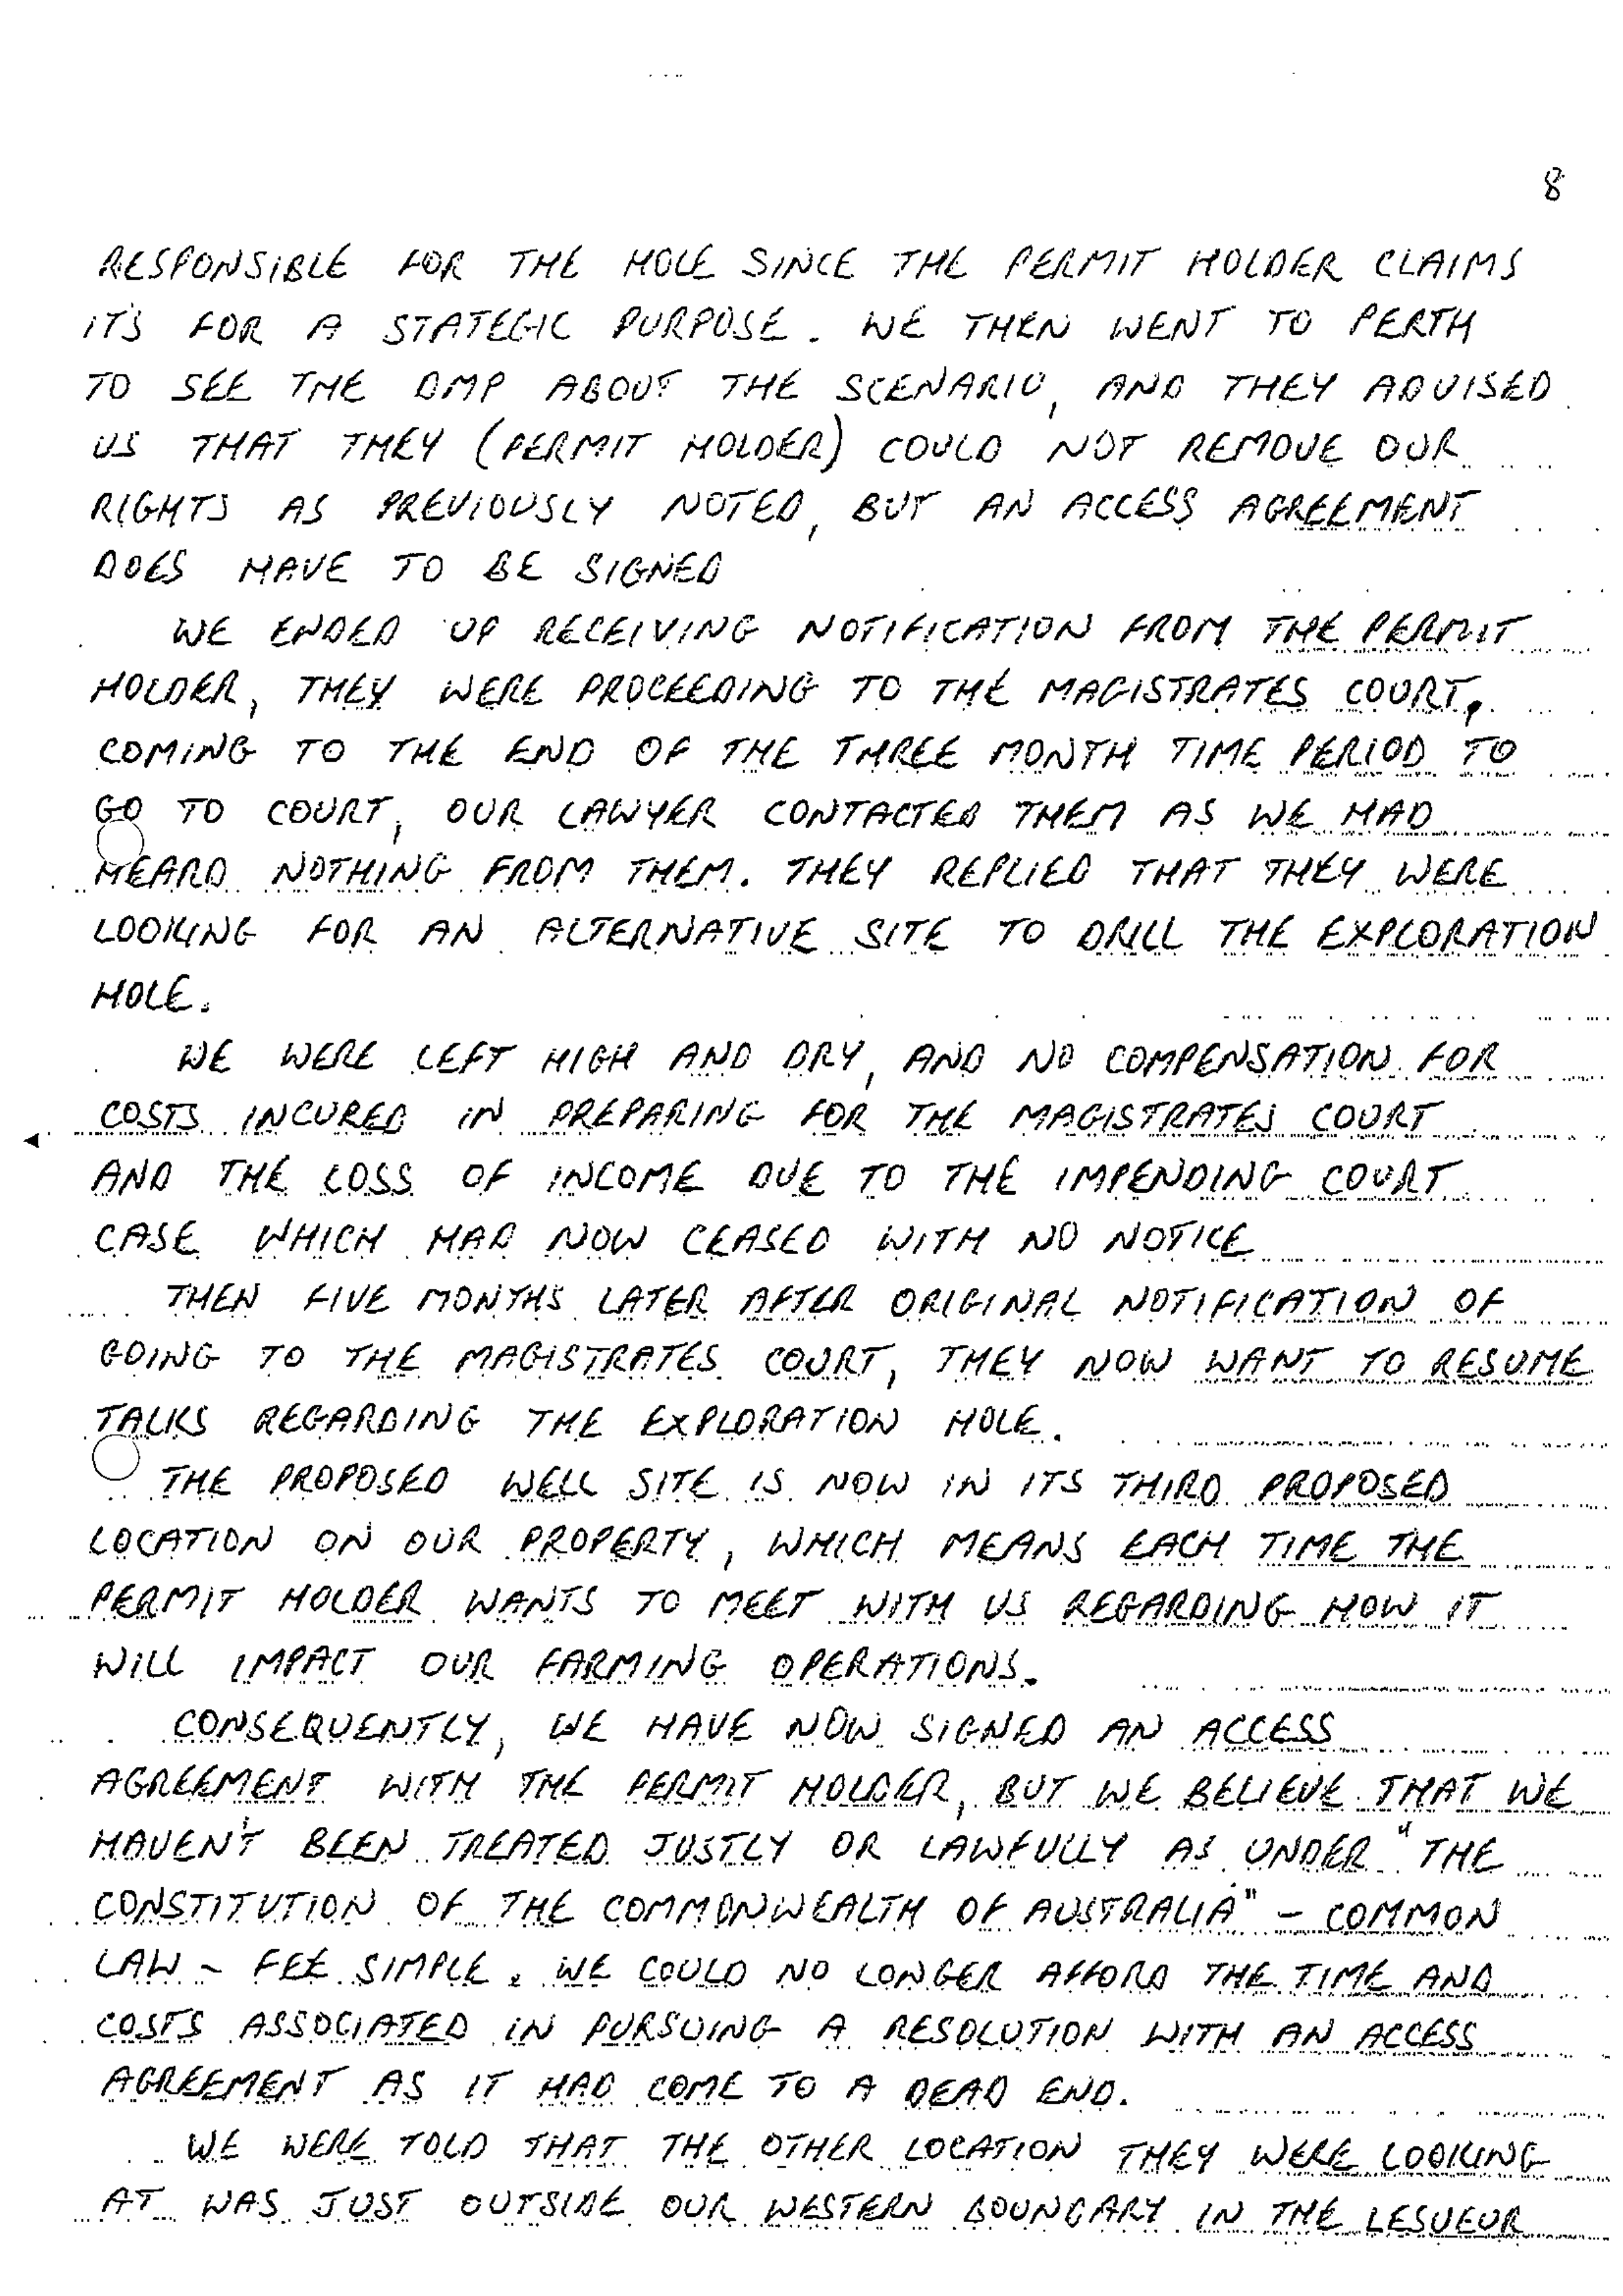 8
RESPONSIBLE FOR THE HOLE SINCE THE PERMIT HOLDER CLAIMS
ITS FOR A STATEGIC PURPOSE. WE THEN WENT TO PERTH
TO SEE THE DMP ABOUT THE SCENARIO, AND THEY ADVISED
US THAT THEY (PERMIT HOLDER) COULD NOT REMOVE OUR
RIGHTS AS PREVIOUSLY NOTED, BUT AN ACCESS AGREEMENT
DOES HAVE TO BE SIGNED
WE ENDED UP RECEIVING NOTIFICATION FROM THE PERMIT
HOLDER, THEY WERE PROCEEDING TO THE MAGISTRATES COURT,
COMING TO THE END OF THE THREE MONTH TIME PERIOD TO
GO TO COURT, OUR LAWYER CONTACTED THEM AS WE HAD
HEARD NOTHING FROM THEM. THEY REPLIED THAT THEY WERE
LOOKING FOR AN ALTERNATIVE SITE TO DRILL THE EXPLORATION
HOLE.
WE WERE LEFT HIGH AND DRY, AND NO COMPENSATION FOR
COSTS INCURED IN PREPARING FOR THE MAGISTRATES COURT
AND THE LOSS OF INCOME DUE TO THE IMPENDING COURT
CASE WHICH HAD NOW CEASED WITH NO NOTICE
THEN FIVE MONTHS LATER AFTER ORIGINAL NOTIFICATION OF
GOING TO THE MAGISTRATES COURT, THEY NOW WANT TO RESUME
TALKS REGARDING THE EXPLORATION HOLE.
THE PROPOSED WELL SITE IS NOW IN ITS THIRD PROPOSED
LOCATION ON OUR PROPERTY, WHICH MEANS EACH TIME THE
PERMIT HOLDER WANTS TO MEET WITH US REGARDING HOW IT
WILL IMPACT OUR FARMING OPERATIONS.
CONSEQUENTLY, WE HAVE NOW SIGNED AN ACCESS
AGREEMENT WITH THE PERMIT HOLDER, BUT WE BELIEVE THAT WE
HAVEN'T BEEN TREATED JUSTLY OR LAWFULLY AS UNDER "THE
CONSTITUTION OF THE COMMONWEALTH OF AUSTRALIA" - COMMON
LAW - FEE SIMPLE. WE COULD NO LONGER AFFORD THE TIME AND
COSTS ASSOCIATED IN PURSUING A RESOLUTION WITH AN ACCESS
AGREEMENT AS IT HAD COME TO A DEAD END.
WE WERE TOLD THAT THE OTHER LOCATION THEY WERE LOOKING
AT WAS JUST OUTSIDE OUR WESTERN BOUNDARY IN THE LESUEUR